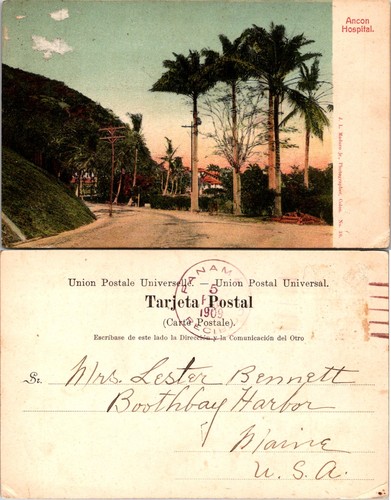 Ancon
Hospital.
J. L. Maduro Jr., Photographer, Colon.
Union Postale Universelle. — Union Postal Universal.
PANAMA
5
1909
Tarjeta Postal
(Carte Postale).
Escríbase de este lado la Dirección y la Comunicación del Otro
Sr. Mrs. Lester Bennett
Boothbay Harbor
Maine
U. S. A.